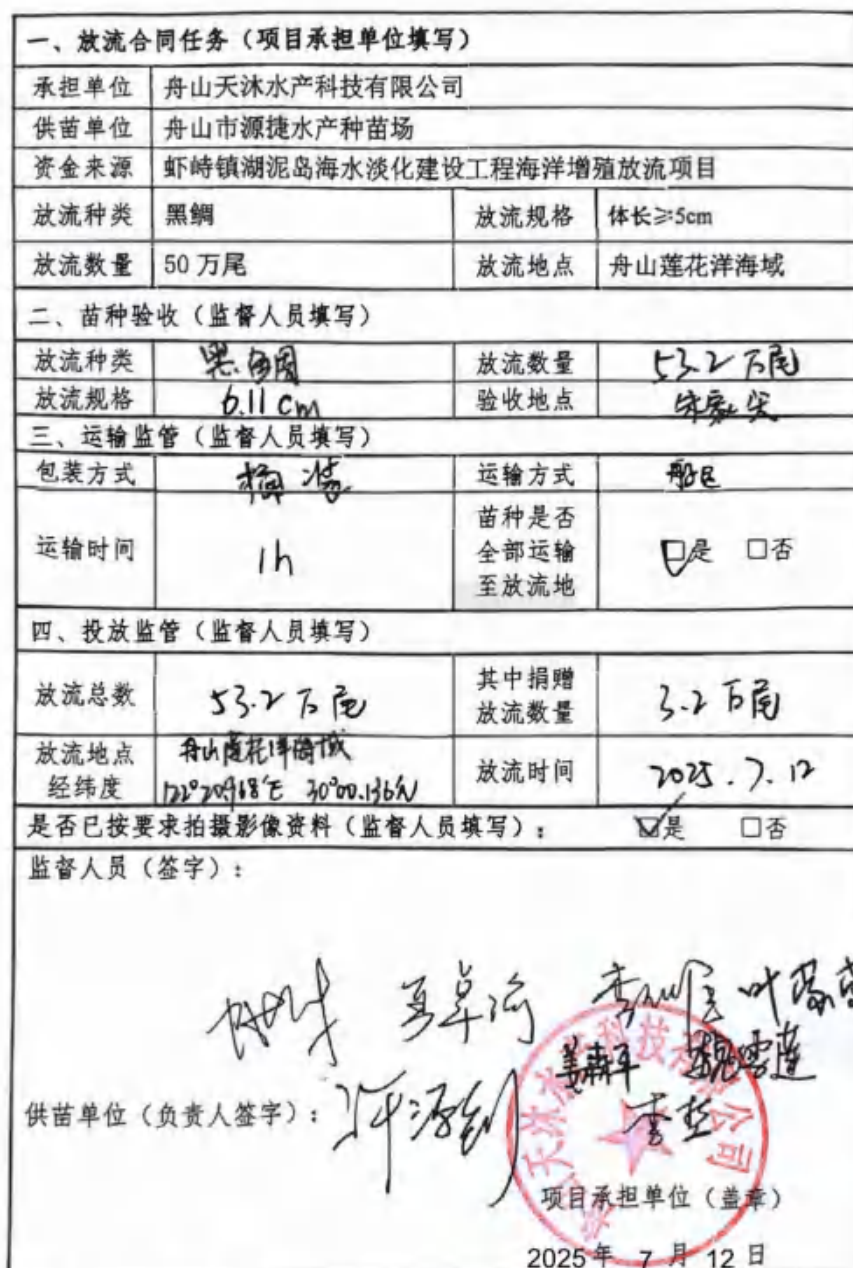 一、放流合同任务（项目承担单位填写）
承担单位 舟山天沐水产科技有限公司
供苗单位 舟山市源捷水产种苗场
资金来源 虾峙镇湖泥岛海水淡化建设工程海洋增殖放流项目
放流种类 黑鲷 放流规格 体长≥5cm
放流数量 50万尾 放流地点 舟山莲花洋海域
二、苗种验收（监督人员填写）
放流种类 黑鲷 放流数量 53.2万尾
放流规格 6.11cm 验收地点 朱家尖
三、运输监管（监督人员填写）
包装方式 桶装 运输方式 船运
运输时间 1h 苗种是否
全部运输
至放流地 ☑是 □否
四、投放监管（监督人员填写）
放流总数 53.2万尾 其中捐赠
放流数量 3.2万尾
放流地点
经纬度 舟山莲花洋海域
122°20.968'E 30°00.136'N 放流时间 2025.7.12
是否已按要求拍摄影像资料（监督人员填写）： ☑是 □否
监督人员（签字）：
姜森平
李哲
供苗单位（负责人签字）：
天沐水产科技有限公司
项目承担单位（盖章）
2025年 7月 12日